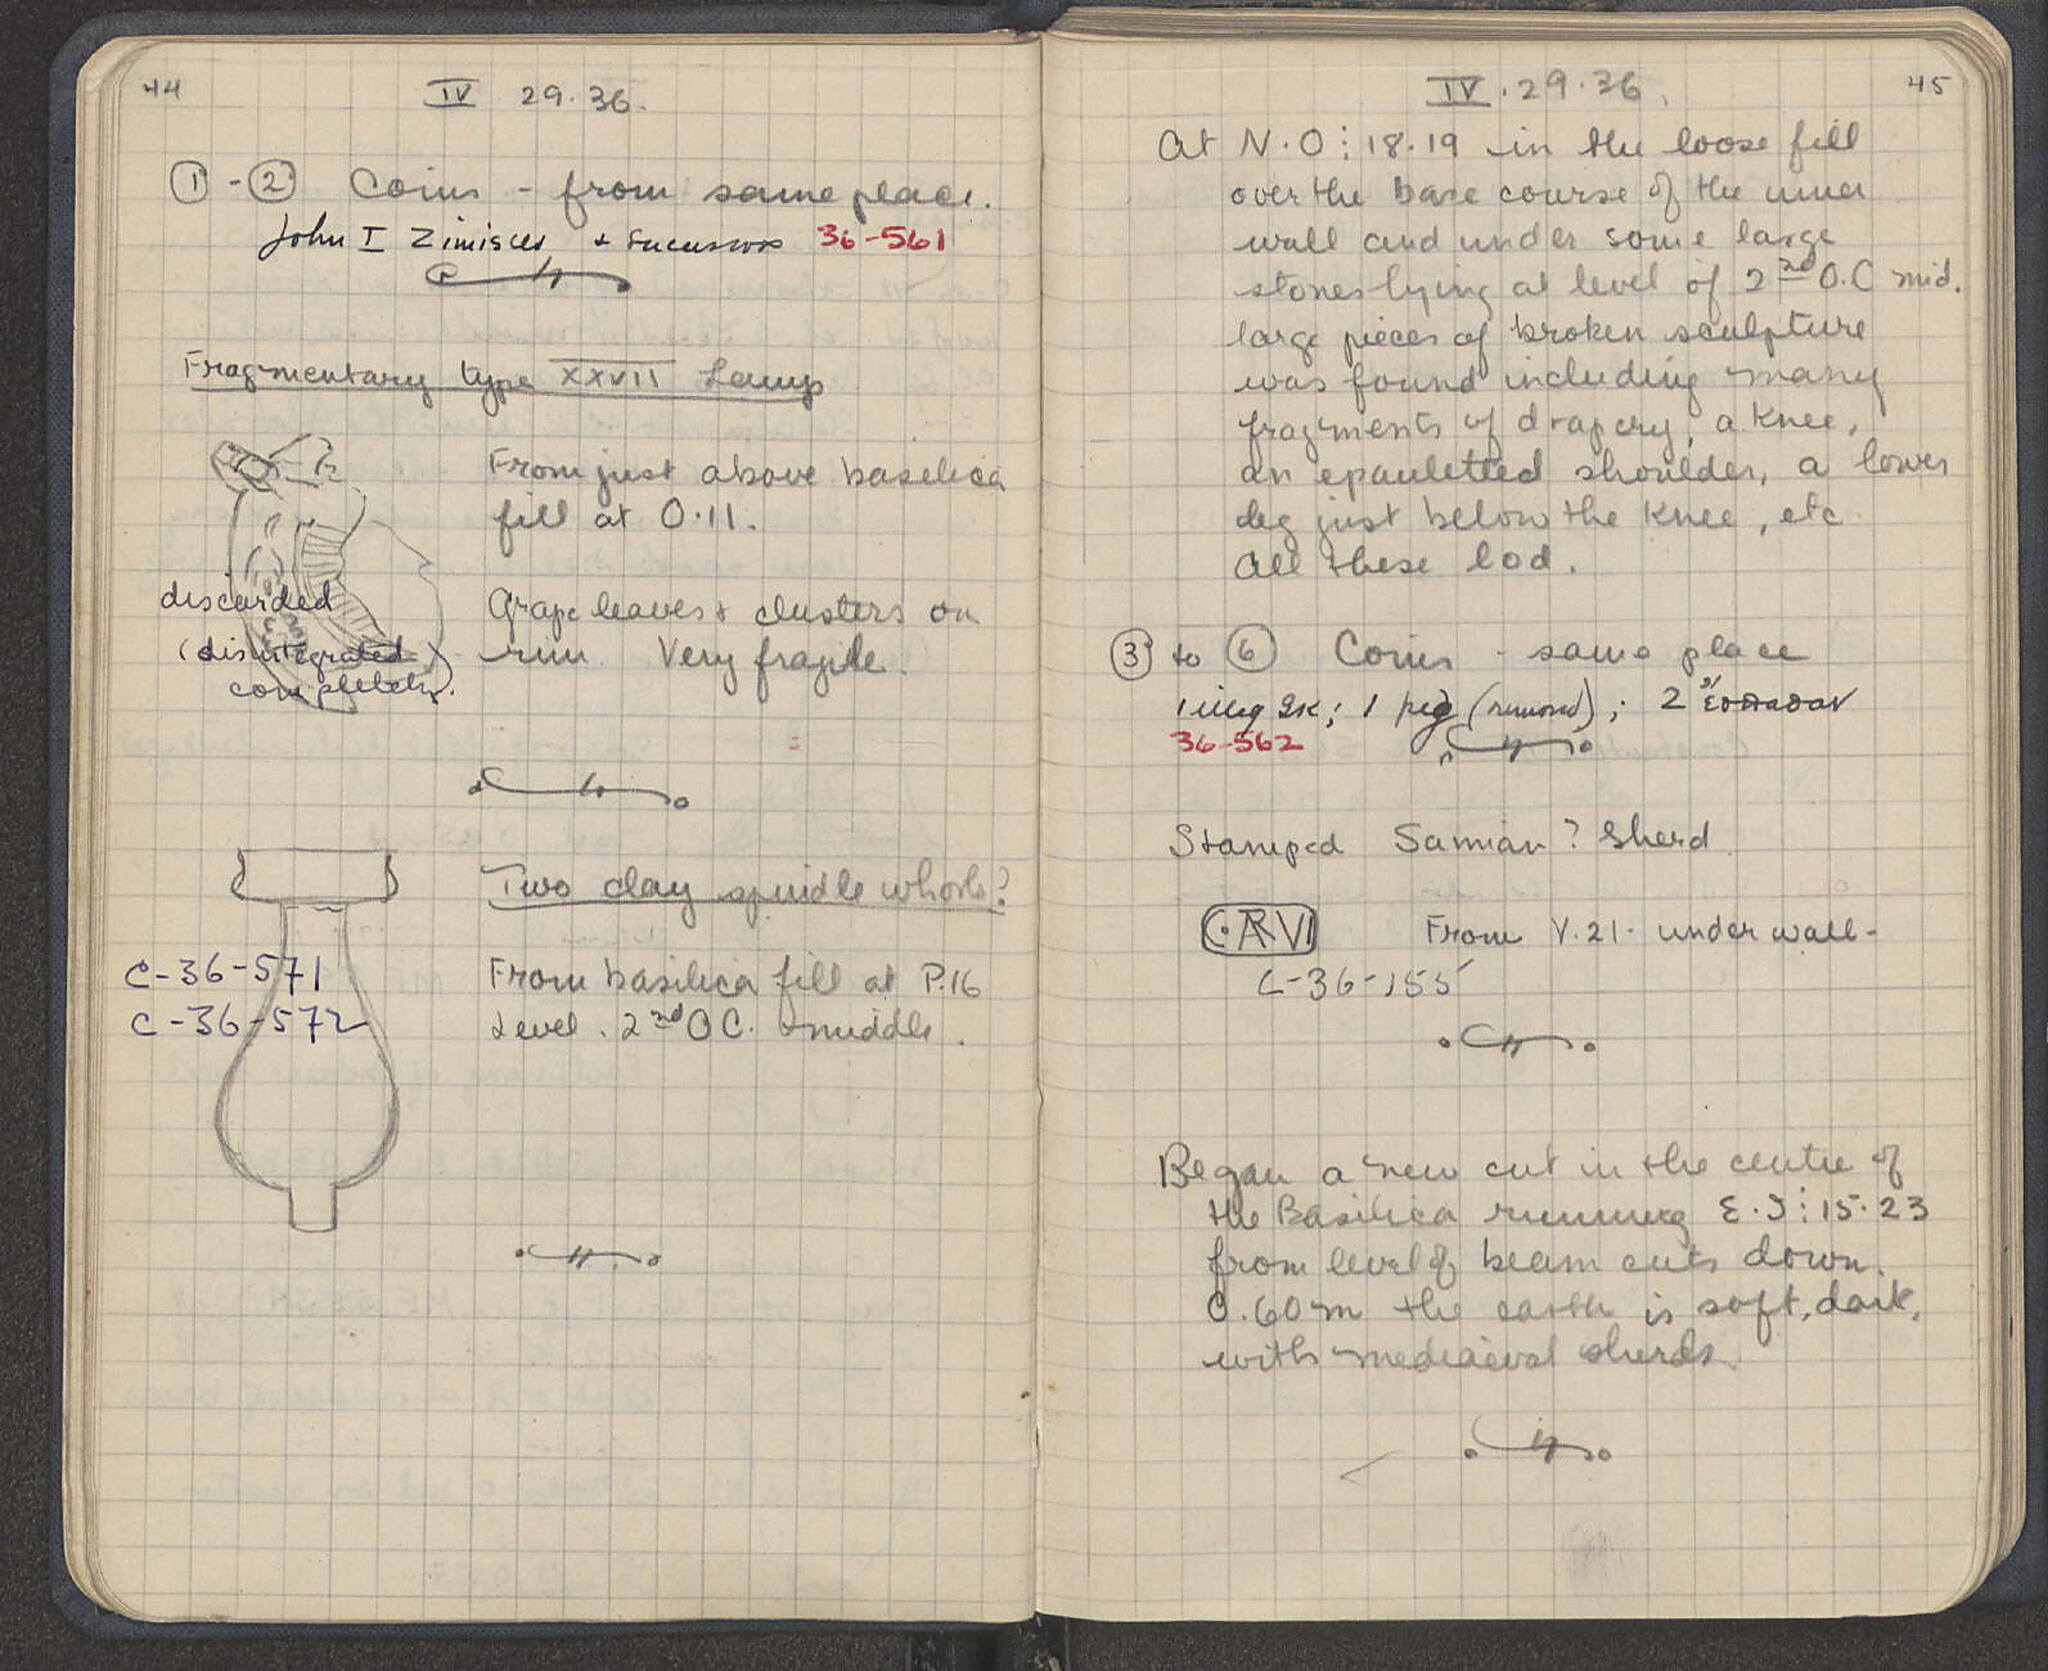 44
IV 29.36.
① - ② Coins - from same place.
John I Zimisces + successors 36-561
Fragmentary type XXVII Lamp
From just above basilica
fill at O.11.
discarded
(disintegrated
completely).
Grape leaves + clusters on
rim. Very fragile.
Two clay spindle whorls?
C-36-571
C-36-572
From basilica fill at P.16
Level. 2nd O C. middle.
IV.29.36.
45
At N.O:18.19 in the loose fill
over the base course of the inner
wall and under some large
stones lying at level of 2nd O.C mid.
large pieces of broken sculpture
was found including many
fragments of drapery, a knee,
an epauletted shoulder, a lower
leg just below the knee, etc.
All these lod.
③ to ⑥ Coins - same place
1 illeg Gk; 1 peg (removed); 2
36-562
Stamped Samian? Sherd
C·ARVI
From V.21. under wall-
C-36-155
Began a new cut in the centre of
the Basilica running E.J:15.23
from level of beam cuts down.
0.60m the earth is soft, dark,
with mediaeval sherds.